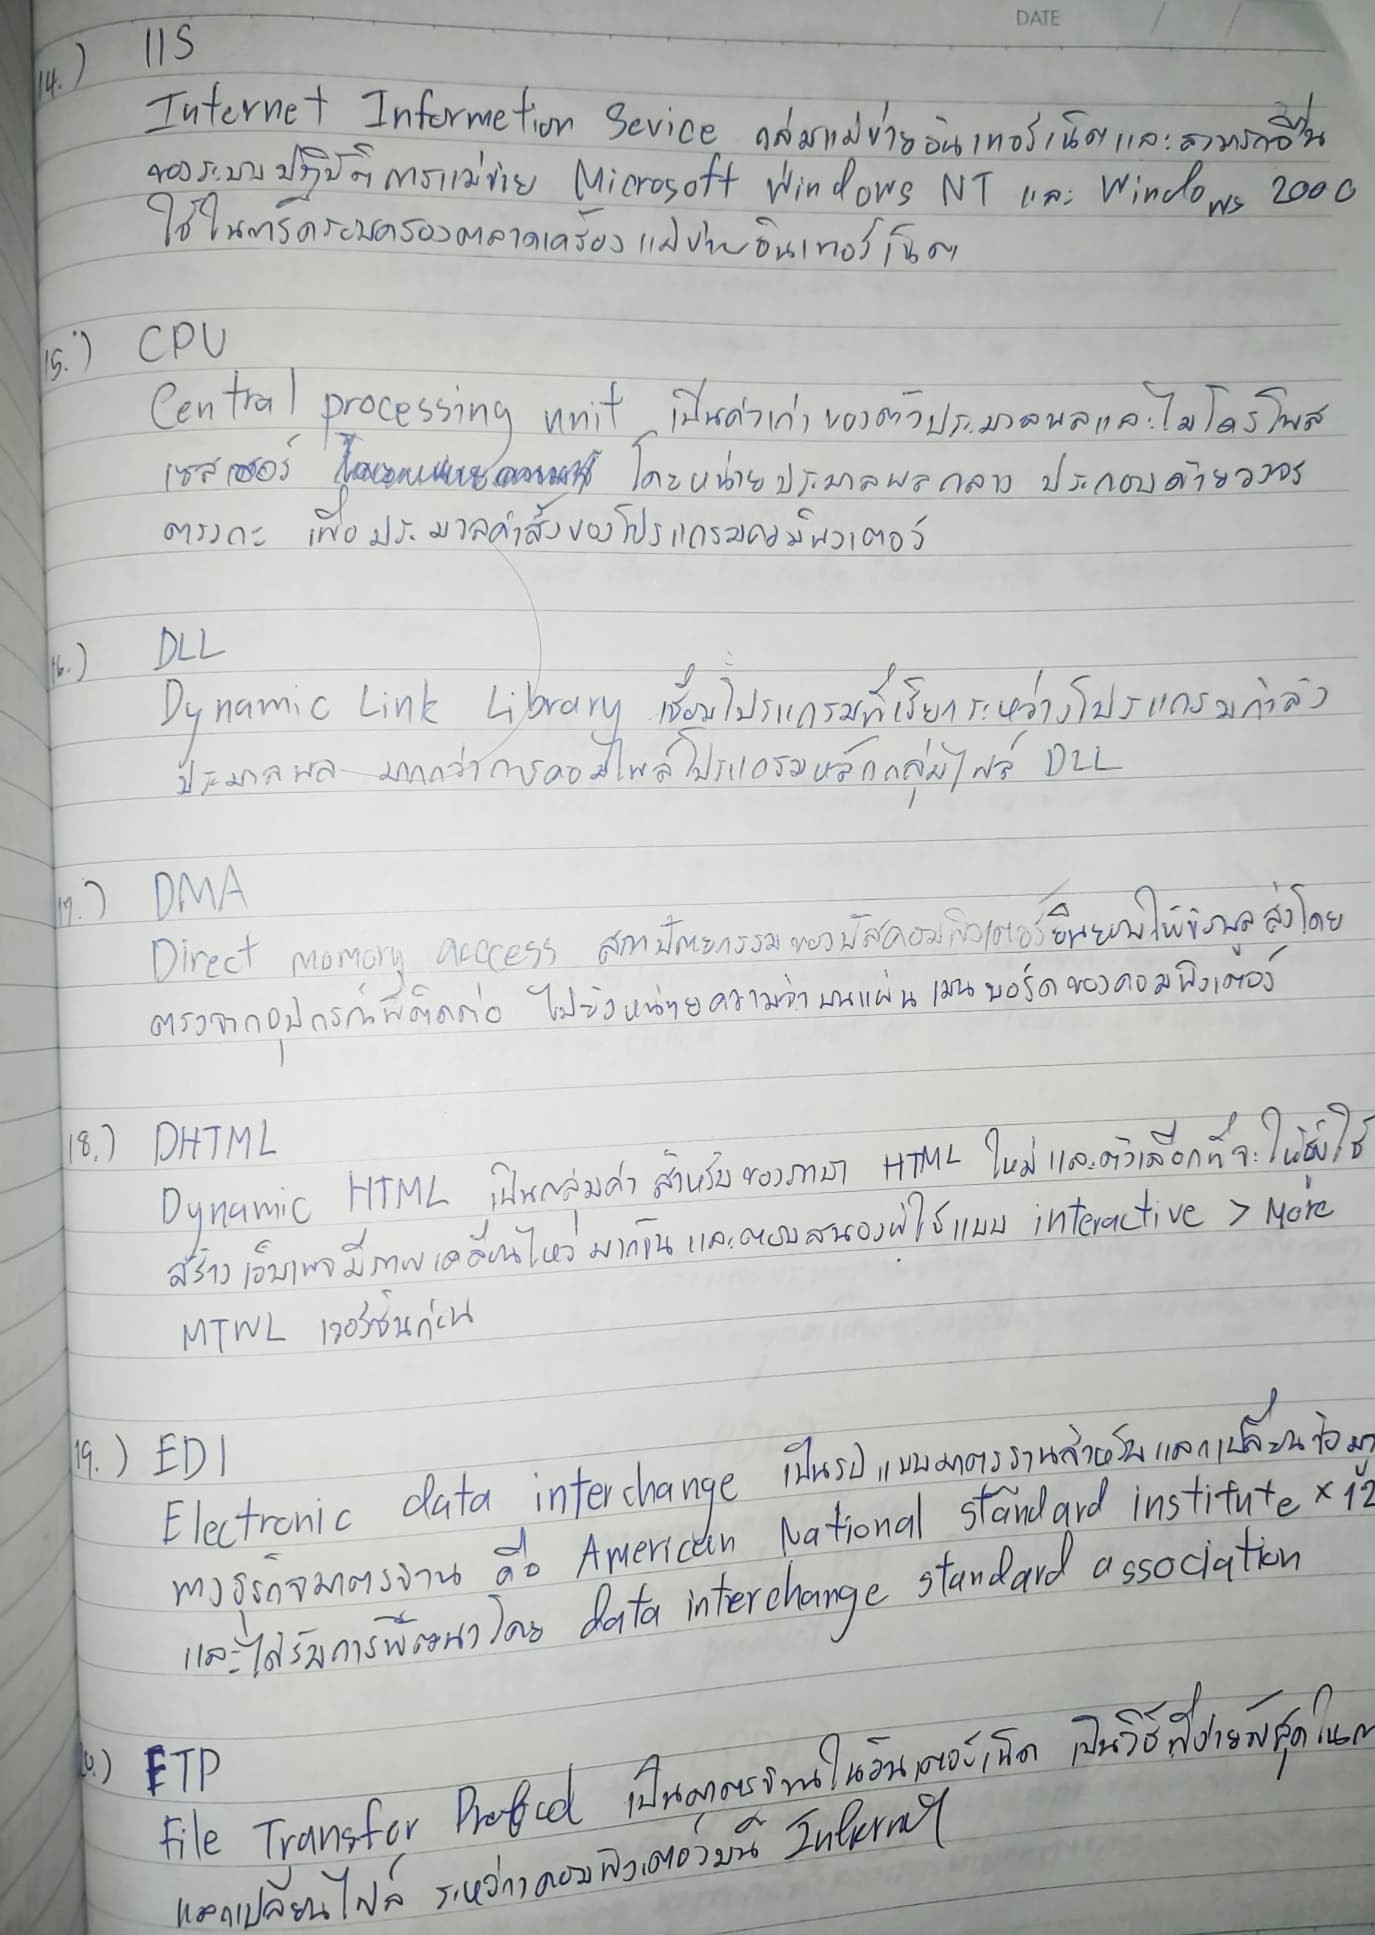 DATE / /
14.) IIS
Internet Informetion Sevice กล่มแม่ข่ายอินเทอร์เน็ตและสามารถอื่น
ของระบบปฏิบัติการแม่ข่าย Microsoft Windows NT และ Windows 2000
ใช้ในการ แม่ข่ายอินเทอร์เน็ต
15.) CPU
Central processing unit เป็นคำเก่าของตัวประมวลผลและไมโครโพส
เซสเซอร์ โดยหน่วยประมาลผลกลาง ประกอบด้วยวงจร
ตรงกะ เพื่อประมวลคำสั่งของโปรแกรมคอมพิวเตอร์
16.) DLL
Dynamic Link Library เชื่อมโปรแกรมที่เรียกระหว่างโปรแกรมกำลัง
ประมาลผล มากกว่าการคอมไพล์โปรแกรมหลักกลุ่มไฟล์ DLL
17.) DMA
Direct momory access สถาปัตยกรรมของบัสคอมพิวเตอร์ยินยอมให้ข้อมูลส่งโดย
ตรงจากอุปกรณ์ที่ติดต่อ ไปยังหน่วยความจำบนแผ่น เมนบอร์ดของคอมพิวเตอร์
18.) DHTML
Dynamic HTML เป็นกลุ่มคำ สำหรับของภาษา HTML ใหม่และตัวเลือกที่จะให้ผู้ใช้
สร้างเว็บเพจมีภาพเคลื่อนไหวมากขึ้นและตอบสนองผู้ใช้แบบ interactive > More
MTWL เวอร์ชั่นก่อน
19.) EDI
Electronic data interchange เป็นรูปแบบมาตรฐานสำหรับแลกเปลี่ยนข้อมู
ทางธุรกิจมาตรฐาน คือ American National standard institute × 12
และได้รับการพัฒนาโดย data interchange standard association
20.) FTP
File Transfer เป็นมาตรฐานในอินเตอร์เน็ต เป็นวิธีที่ง่ายที่สุดในก
แลกเปลี่ยนไฟล์ ระหว่างคอมพิวเตอร์บน Internet